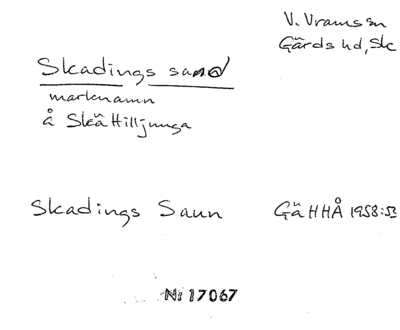 V. Vramssn
Gärds hd, Skc
Skadings sand
marknamn
å Skättilljunga
Skadings Saun GäHHÅ 1958:53
Nr 17067